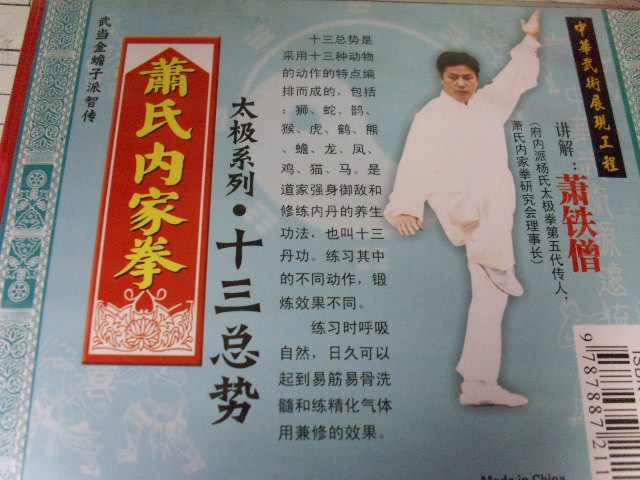 武当金蟾子派智传
蕭氏内家拳
太极系列·十三总势
十三总势是
采用十三种动物
的动作的特点编
排而成的，包括
：狮、蛇、鹊、
猴、虎、鹤、熊
、蟾、龙、凤、
鸡、猫、马。是
道家强身御敌和
修练内丹的养生
功法，也叫十三
丹功。练习其中
的不同动作，锻
炼效果不同。
练习时呼吸
自然，日久可以
起到易筋易骨洗
髓和练精化气体
用兼修的效果。
中華武術展現工程
讲解：萧铁僧
（府内派杨氏太极拳第五代传人，
萧氏内家拳研究会理事长）
9 787887 211
Made in China